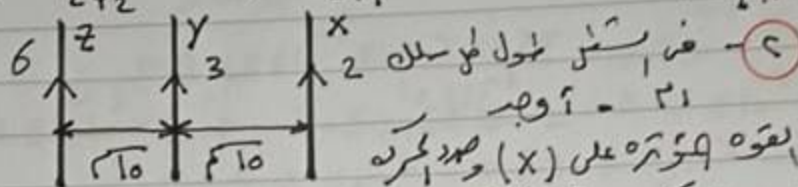 ٢ - في الشكل طول كل سلك
١م - أوجد
القوه المؤثره على (X) وحدد الحركه
6 Z Y 3 X 2
√10 √10